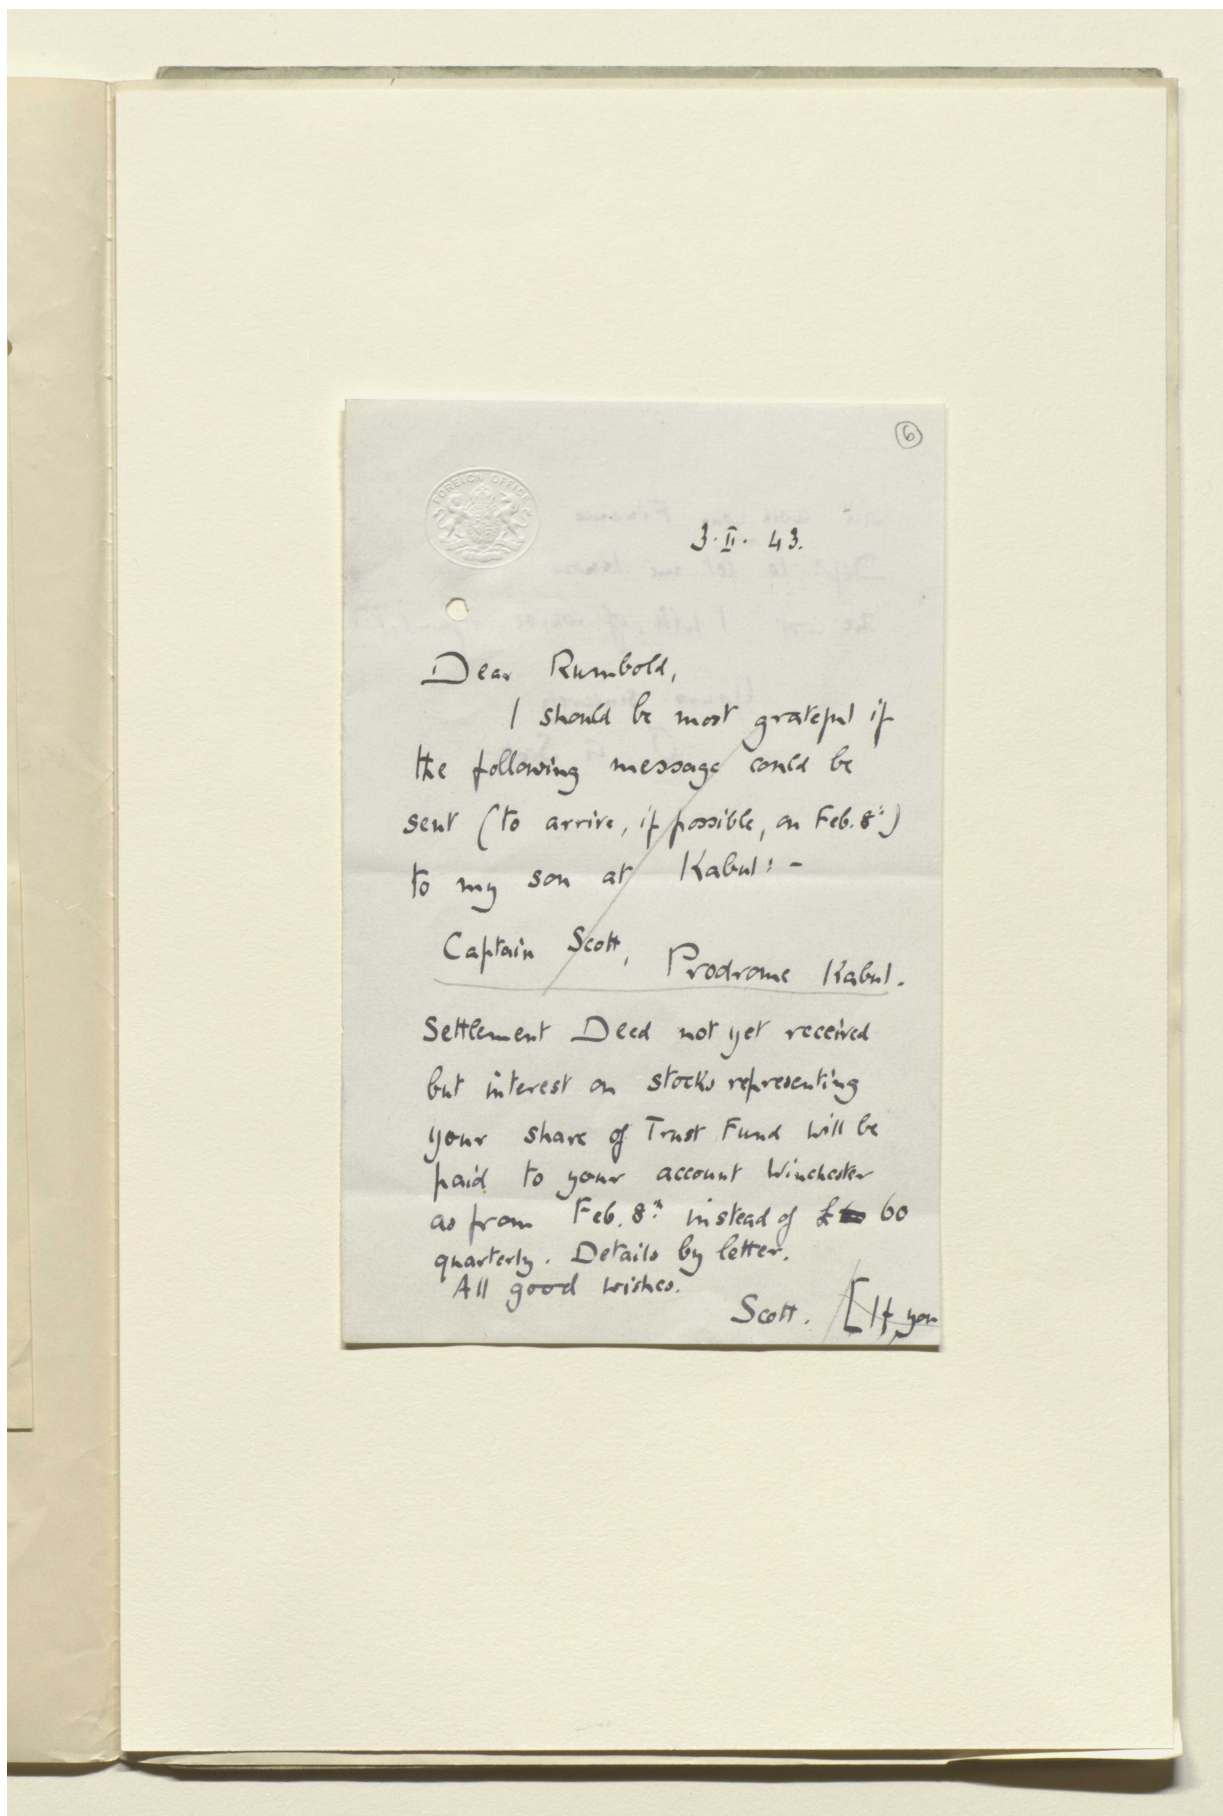 6
FOREIGN OFFICE
3. II. 43.
Dear Rumbold,
I should be most grateful if
the following message could be
sent (to arrive, if possible, on Feb. 8th)
to my son at Kabul: -
Captain Scott, Prodrome Kabul.
Settlement Deed not yet received
but interest on stocks representing
your share of Trust Fund will be
paid to your account Winchester
as from Feb. 8th instead of £ 60
quarterly. Details by letter.
All good wishes.
Scott. [If you